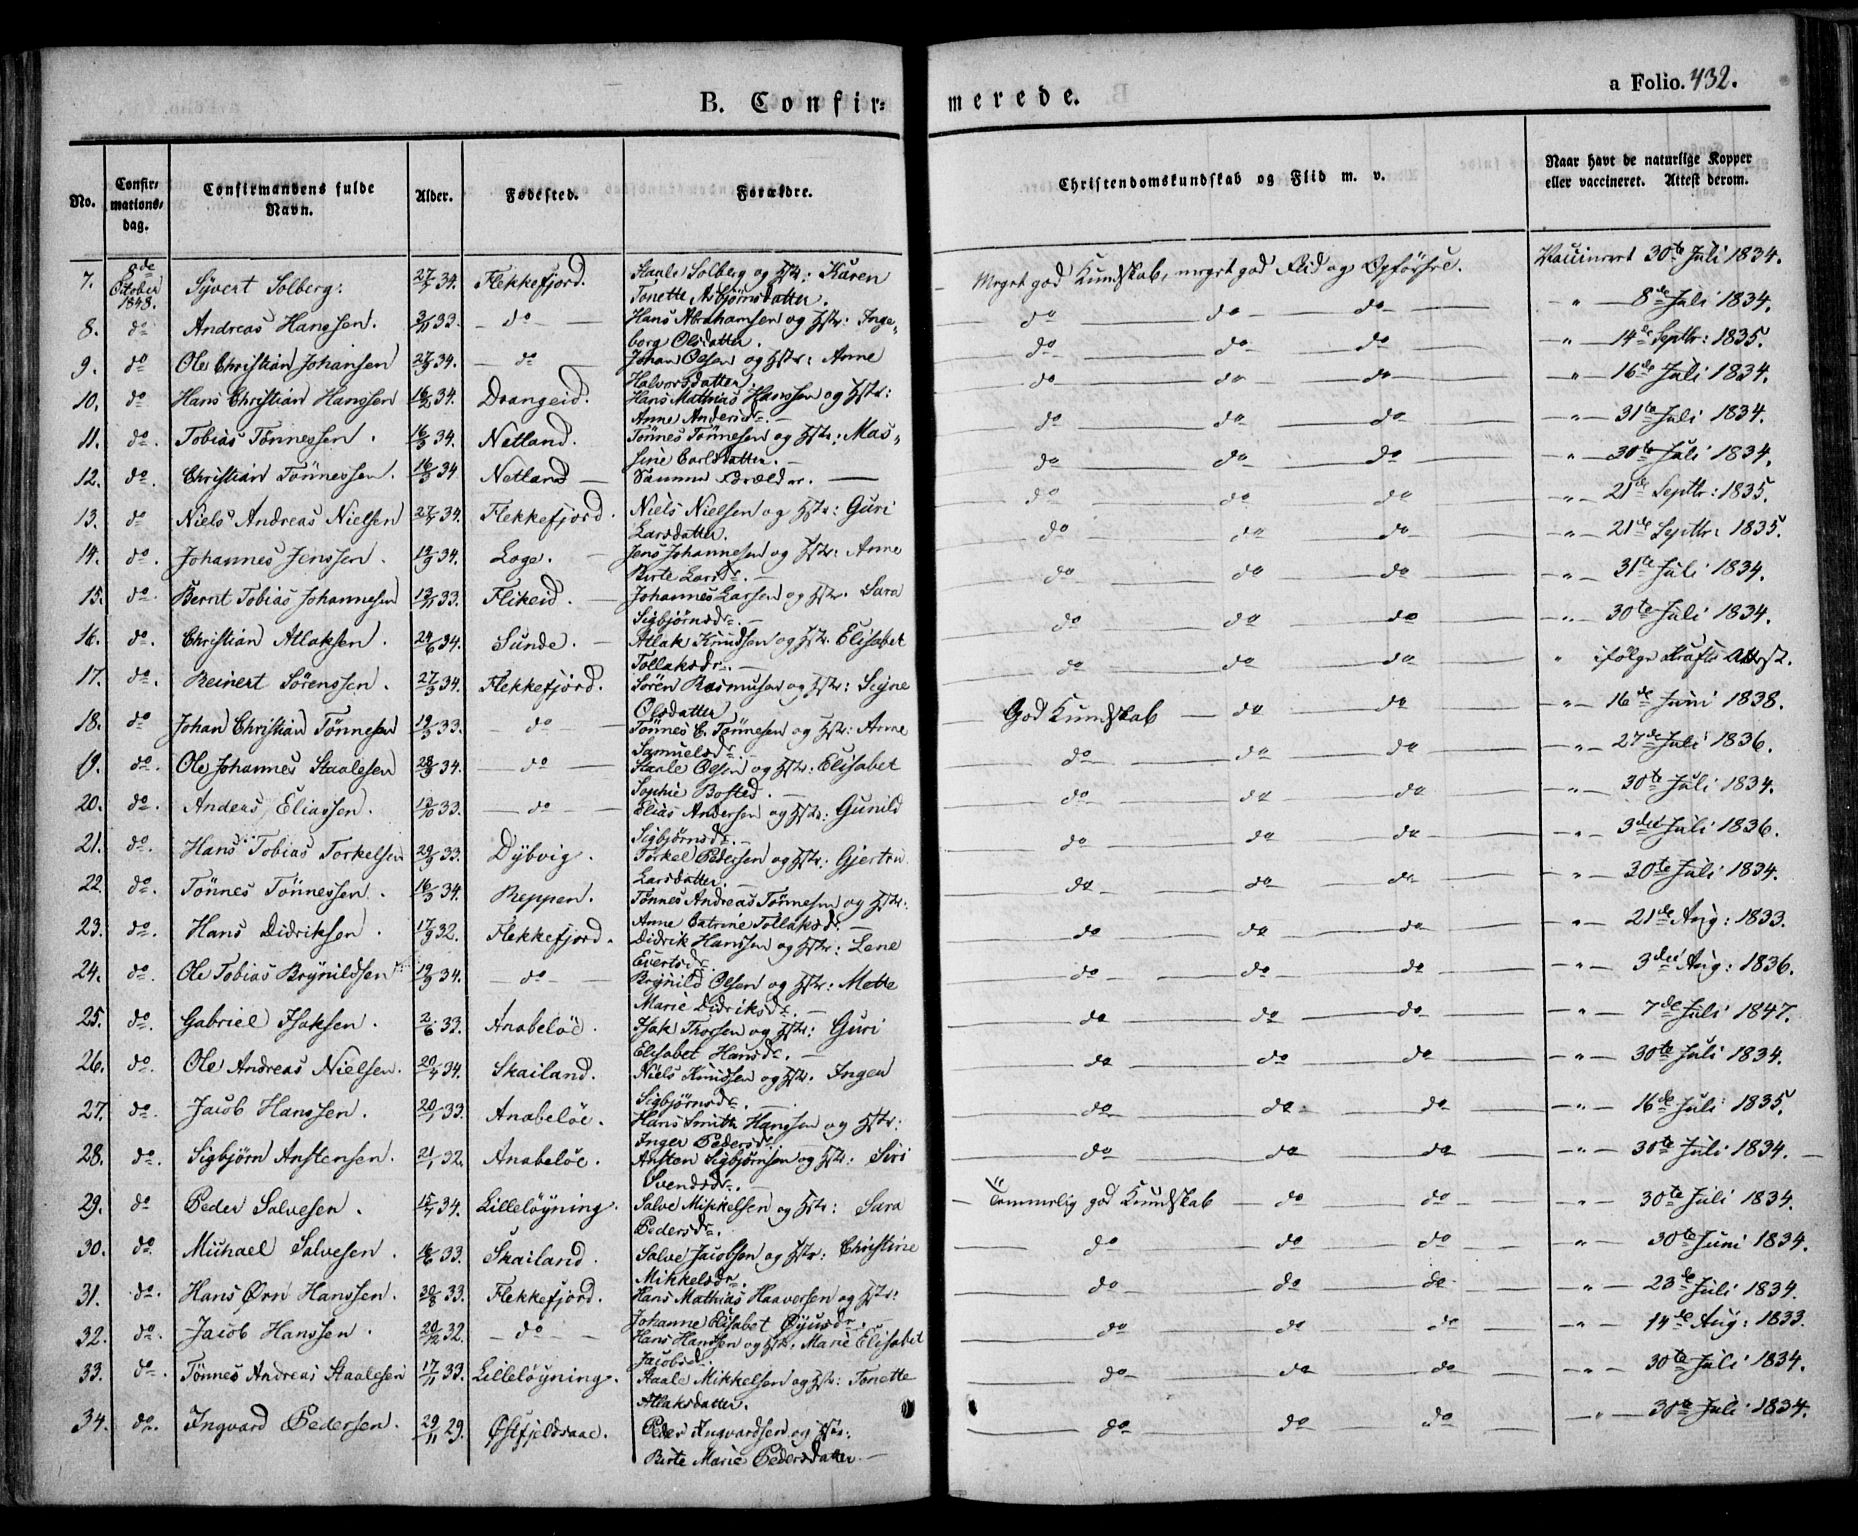 B. Confir=
merede.
a Folio. 432.
No. Confir-mations-dag. Confirmandens fulde Navn. Alder. Fødested. Forældre. Christendomskundskab og Flid m. v. Naar havt de naturlige Kopper eller vaccineret. Attest derom.
7. 8de October 1848. Syvert Solberg. 34. Flekkefjord. Staale Solberg og Hstr: Karen Meget god Kundskab, meget god Flid og Opførsel. Vaccineret 30te Juli 1834.
Tonette Asbjørnsdatter.
8. do Andreas Hanssen. 33. do Hans Abrahamsen og Hstr: Inge- do do do " 8de Juli 1834.
borg Olsdatter.
9. do Ole Christian Johansen 34. do Johan Olsen og Hstr: Anne do do do " 14de Septbr: 1835.
Halvorsdatter.
10. do Hans Christian Hanssen 34. Drangeid. Hans Mathias Hanssen og Hstr: do do do " 16de Juli 1834.
Anne Andersdr.
11. do. Tobias Tønnessen. 16/3 34. Netland. Tønnes Tønnesen og Hstr: Mas- do do do " 31te Juli 1834.
sine Carlsdatter.
12. do. Christian Tønnessen. 16/3 34 Netland Samme Forældre. do do do " 30te Juli 1834.
13. do Niels Andreas Nielsen 34. Flekkefjord. Niels Nielsen og Hstr: Guri do do do " 21de Septbr: 1835.
Larsdatter.
14. do. Johannes Jenssen. 34. Loge. Jens Johannesen og Hstr: Anne do do do " 21de Septbr: 1835.
Birte Larsdr.
15. do. Bernt Tobias Johannesen 33. Flikeid. Johannes Larsen og Hstr. Sara do do do " 31te Juli 1834.
Sigbjørnsdr.
16. do. Christian Atlaksen. 34. Sunde. Atlak Knudsen og Hstr. Elisabet do do do " 30te Juli 1834.
Tollaksdr.
17. do. Reinert Sørenssen. 27/3 34. Flekkefjord. Søren Rasmusen og Hstr: Signe do do do " ifølge Attest.
Olsdatter
18. do Johan Christian Tønnesen 33. do Tønnes C. Tønnesen og Hstr: Anne God Kundskab do do " 16de Juni 1838.
Samuelsdr.
19. do. Ole Johannes Staalesen 34. do Staale Olsen og Hstr: Elisabet do do do " 27de Juli 1836.
Sophie Bosted.
20. do. Andeas Eliassen. 33. do Elias Andersen og Hstr: Gunild do do do " 30te Juli 1834.
Sigbjørnsdr.
21. do. Hans Tobias Torkelsen 33. Dybvig. Torkel Pedersen og Hstr: Gjertru do do do " 3die Juli 1836.
Larsdatter.
22. do. Tønnes Tønnessen. 16/3 34. Reppen. Tønnes Andreas Tønnesen og Hstr: do do do " 30te Juli 1834.
Anne Catrine Tollaksdr.
23. do. Hans Didriksen. 32. Flekkefjord. Didrik Hanssen og Hstr: Lene do do do " 21de Aug: 1833.
Evertsdr.
24. do Ole Tobias Brynildsen 34. do Brynild Olsen og Hstr: Mette do do do " 3die Aug: 1836.
Marie Didriksdr.
25. do. Gabriel Isaksen. 2/6 33. Anabeløe. Isak Thorsen og Hstr: Guri do do do " 7de Juli 1847.
Elisabet Hansdr.
26. do. Ole Andreas Nielsen. 34. Skailand. Niels Knudsen og Hstr. Ingen do do do " 30te Juli 1834.
Sigbjørnsdr.
27. do. Jacob Hanssen. 33. Anabeløe. Hans Smith Hanssen og Hstr: do do do " 16de Juli 1835.
Inger Pedersdr.
28. do. Sigbjørn Anstensen. 21/1 32. Anabeløe. Ansten Sigbjørnsen og Hstr: Siri do do do " 30te Juli 1834.
Svendsdr.
29. do Peder Salvesen. 34. Lilleløyning. Salve Mikkelsen og Hstr: Sara Temmelig god Kundskab do do " 30te Juli 1834.
Pedersdr.
30. do. Michael Salvesen. 33. Skailand. Salve Jacobsen og Hstr: Christine do do do " 30te Juni 1834.
Mikkelsdr.
31. do. Hans Ørn Hanssen. 20/8 33. Flekkefjord. Hans Mathias Haaversen og Hstr: do do do " 23de Juli 1834.
Johanne Elisabet
32. do. Jacob Hanssen. 20/12 32. do Hans Hanssen og Hstr. Marie Elisabet do do do " 14de Aug: 1833.
Jacobsdr.
33. do. Tønnes Andreas Staalesen 17/11 33. Lilleløyning. Staale Mikkelsen og Hstr: Tonette do do do " 30te Juli 1834.
Atlaksdatter.
34. do. Ingvard Pedersen. 29/11 29. Østfjeldsaae. Peder Ingvardsen og Hstr: do do do " 30te Juli 1834.
Birte Marie Pedersdatter